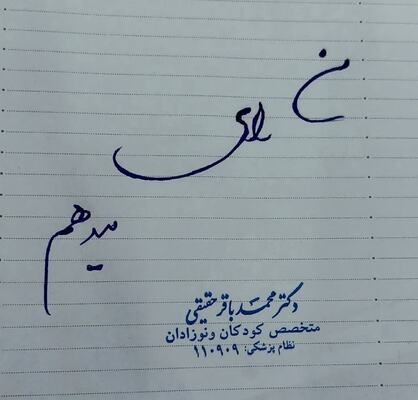 من
رای
میدهم
دکتر محمد باقر حقیقی
متخصص کودکان و نوزادان
نظام پزشکی: ۱۱۰۹۰۹